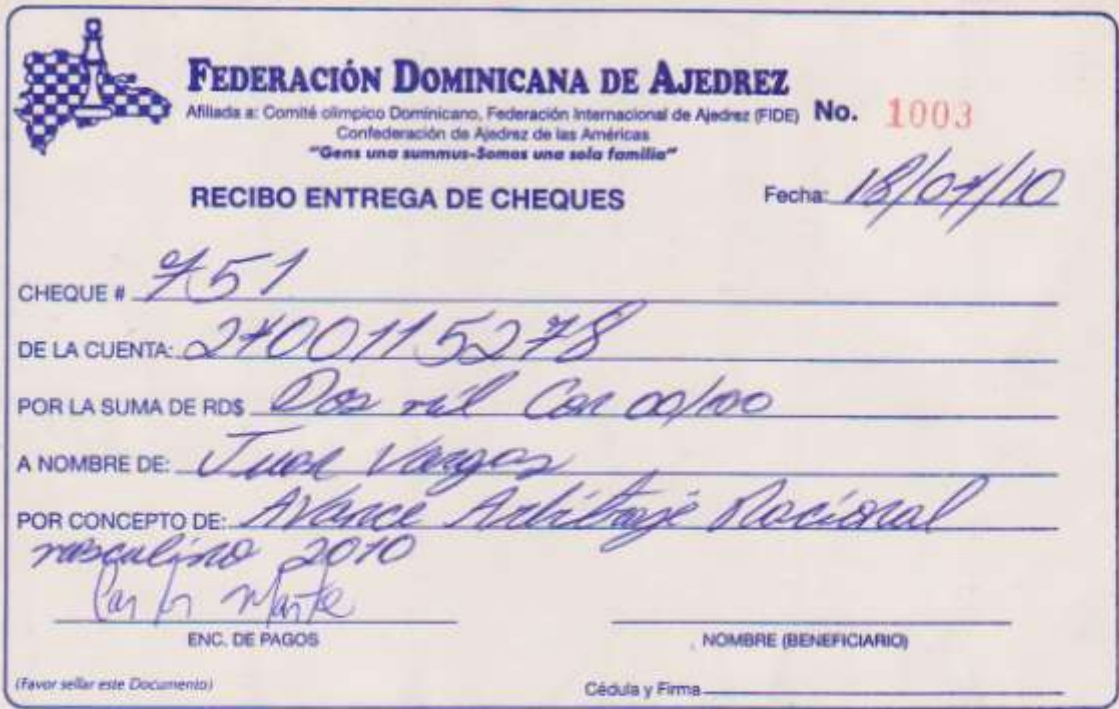 FEDERACIÓN DOMINICANA DE AJEDREZ
Afiliada a: Comité olímpico Dominicano, Federación Internacional de Ajedrez (FIDE) No. 1003
Confederación de Ajedrez de las Américas
"Gens una summus-Somos una sola familia"
RECIBO ENTREGA DE CHEQUES Fecha: 18/07/10
CHEQUE # 751
DE LA CUENTA: 2700115278
POR LA SUMA DE RD$ Dos mil Con 00/100
A NOMBRE DE: Juan Vargas
POR CONCEPTO DE: Avance Arbitraje Nacional
masculino 2010
Carlos Marte
ENC. DE PAGOS NOMBRE (BENEFICIARIO)
(Favor sellar este Documento) Cédula y Firma